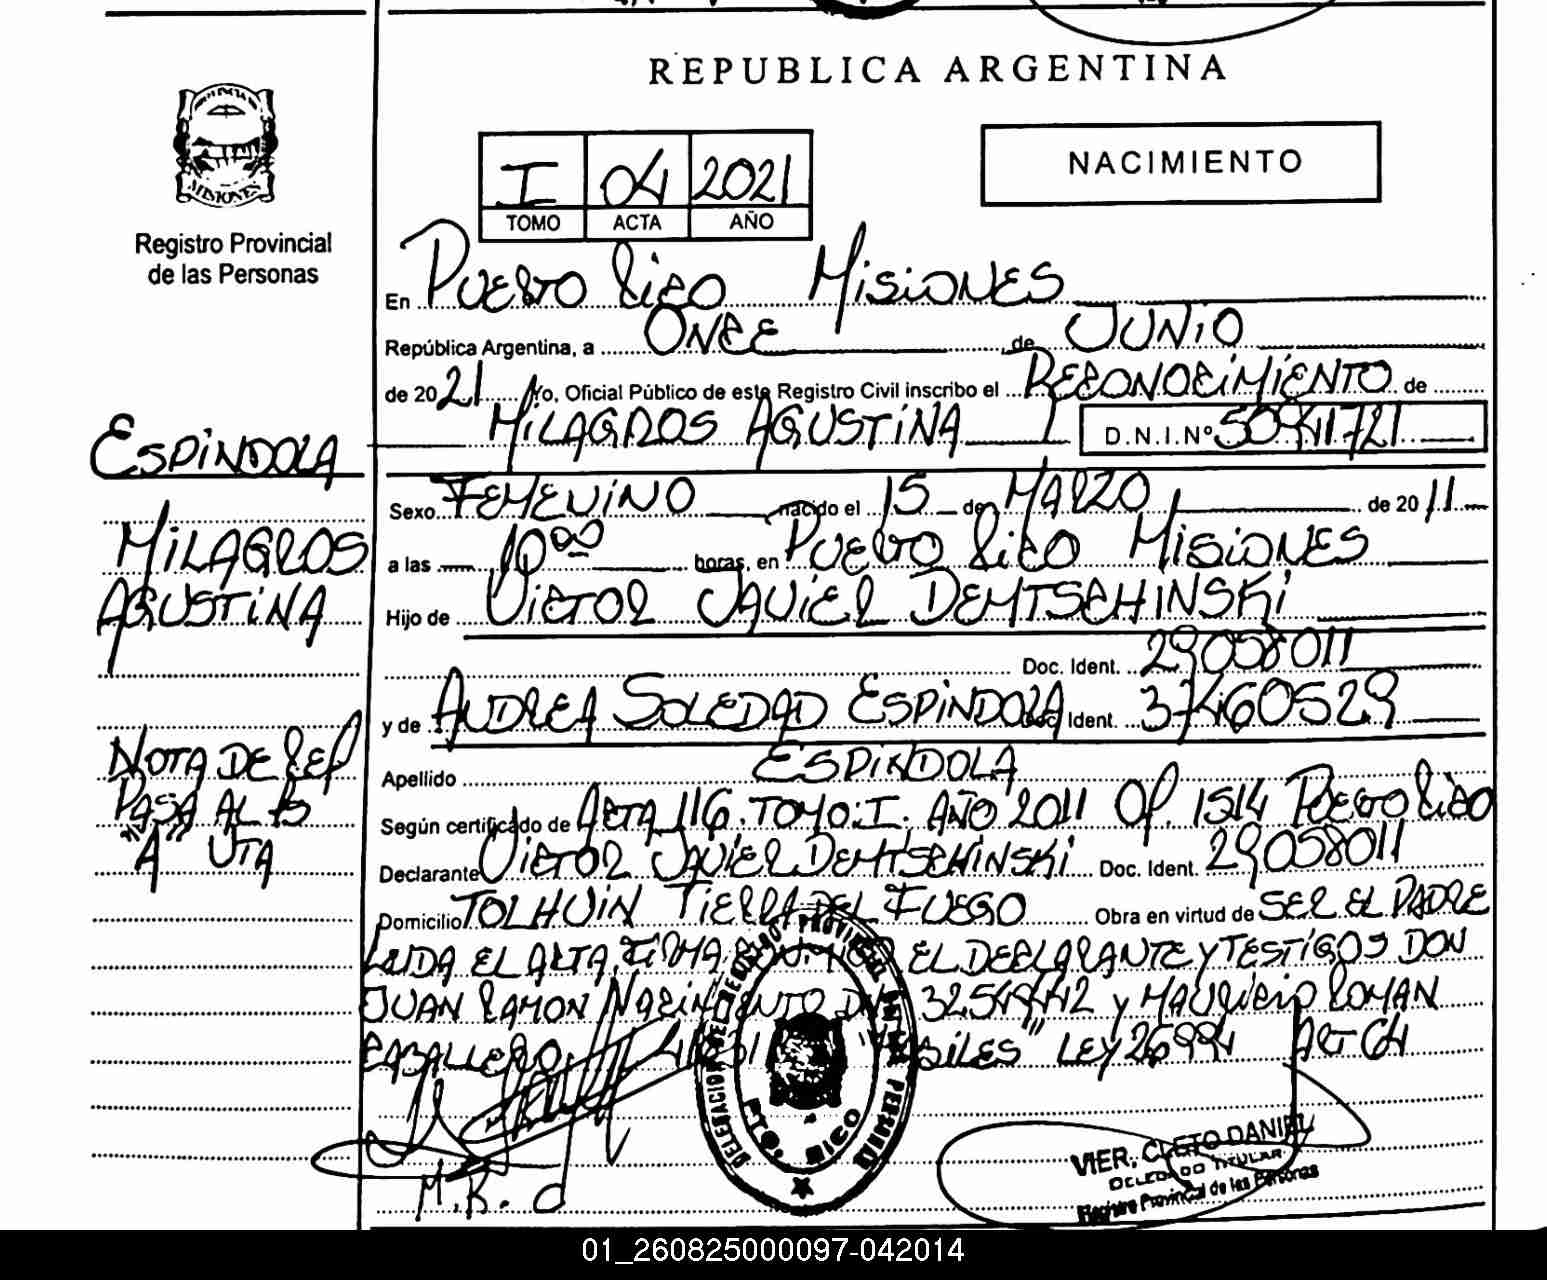 REPUBLICA ARGENTINA
PROVINCIA DE
MISIONES
Registro Provincial
de las Personas
I 04 2021
TOMO ACTA AÑO
NACIMIENTO
En Puerto Rico Misiones
República Argentina, a Once de Junio
de 20 21 Yo, Oficial Público de este Registro Civil inscribo el Reconocimiento de
Milagros Agustina D.N.I.Nº
Espíndola
Milagros
Agustina
Sexo Femenino nacido el 15 de Marzo de 20 11
a las 10 00 horas, en Puerto Rico Misiones
Hijo de Victor Javier Demtschinski
Doc. Ident. 29058011
y de Audrea Soledad Espíndola Doc. Ident. 37460529
Nota de Ref
Pasa al
"A" Vta
Apellido Espíndola
Según certificado de Acta 116. Tomo: I. Año 2011 Of. 1514 Puerto Rico
Declarante Victor Javier Demtschinski Doc. Ident. 29058011
Domicilio Tolhuin Tierra del Fuego Obra en virtud de ser el padre
Leída el acta, firma el declarante y testigos Don
Juan Ramon Nacimiento DNI y Mauricio Roman
Caballero Ley 26994 Art 64
M. R. C
DELEGACION DEL REGISTRO PROVINCIAL DE LAS PERSONAS
PTO. RICO
VIER, CLETO DANIEL
DELEGADO TITULAR
Registro Provincial de las Personas
01_260825000097-042014